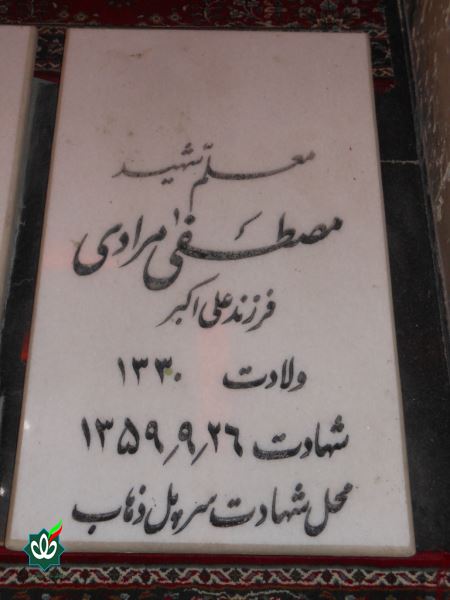 معلم شهید
مصطفی مرادی
فرزند علی اکبر
ولادت ۱۳۳۰
شهادت ۱۳۵۹٫۹٫۲۶
محل شهادت سرپل ذهاب